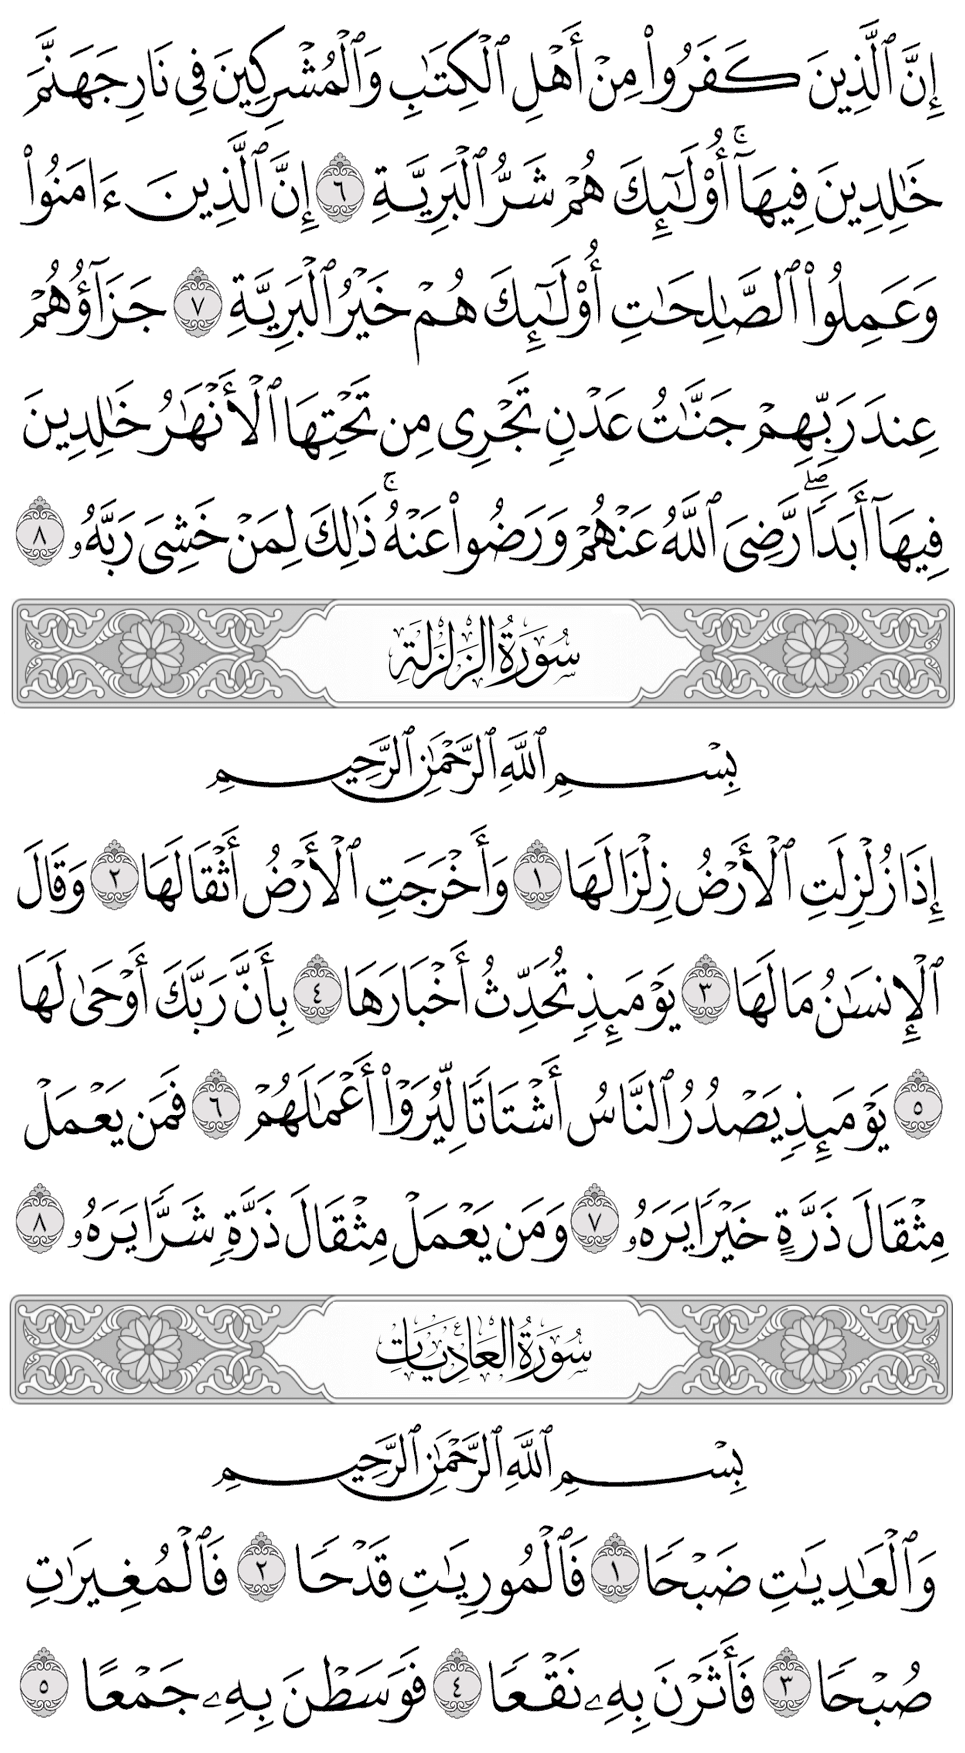 إِنَّ ٱلَّذِينَ كَفَرُوا۟ مِنْ أَهْلِ ٱلْكِتَـٰبِ وَٱلْمُشْرِكِينَ فِى نَارِ جَهَنَّمَ
خَـٰلِدِينَ فِيهَآ ۚ أُو۟لَـٰٓئِكَ هُمْ شَرُّ ٱلْبَرِيَّةِ ٦ إِنَّ ٱلَّذِينَ ءَامَنُوا۟
وَعَمِلُوا۟ ٱلصَّـٰلِحَـٰتِ أُو۟لَـٰٓئِكَ هُمْ خَيْرُ ٱلْبَرِيَّةِ ٧ جَزَآؤُهُمْ
عِندَ رَبِّهِمْ جَنَّـٰتُ عَدْنٍ تَجْرِى مِن تَحْتِهَا ٱلْأَنْهَـٰرُ خَـٰلِدِينَ
فِيهَآ أَبَدًا ۖ رَّضِىَ ٱللَّهُ عَنْهُمْ وَرَضُوا۟ عَنْهُ ۚ ذَٰلِكَ لِمَنْ خَشِىَ رَبَّهُۥ ٨
سُورَةُ الزَّلْزَلَةِ
بِسْمِ ٱللَّهِ ٱلرَّحْمَـٰنِ ٱلرَّحِيمِ
إِذَا زُلْزِلَتِ ٱلْأَرْضُ زِلْزَالَهَا ١ وَأَخْرَجَتِ ٱلْأَرْضُ أَثْقَالَهَا ٢ وَقَالَ
ٱلْإِنسَـٰنُ مَا لَهَا ٣ يَوْمَئِذٍ تُحَدِّثُ أَخْبَارَهَا ٤ بِأَنَّ رَبَّكَ أَوْحَىٰ لَهَا
٥ يَوْمَئِذٍ يَصْدُرُ ٱلنَّاسُ أَشْتَاتًا لِّيُرَوْا۟ أَعْمَـٰلَهُمْ ٦ فَمَن يَعْمَلْ
مِثْقَالَ ذَرَّةٍ خَيْرًا يَرَهُۥ ٧ وَمَن يَعْمَلْ مِثْقَالَ ذَرَّةٍ شَرًّا يَرَهُۥ ٨
سُورَةُ العَادِيَاتِ
بِسْمِ ٱللَّهِ ٱلرَّحْمَـٰنِ ٱلرَّحِيمِ
وَٱلْعَـٰدِيَـٰتِ ضَبْحًا ١ فَٱلْمُورِيَـٰتِ قَدْحًا ٢ فَٱلْمُغِيرَٰتِ
صُبْحًا ٣ فَأَثَرْنَ بِهِۦ نَقْعًا ٤ فَوَسَطْنَ بِهِۦ جَمْعًا ٥